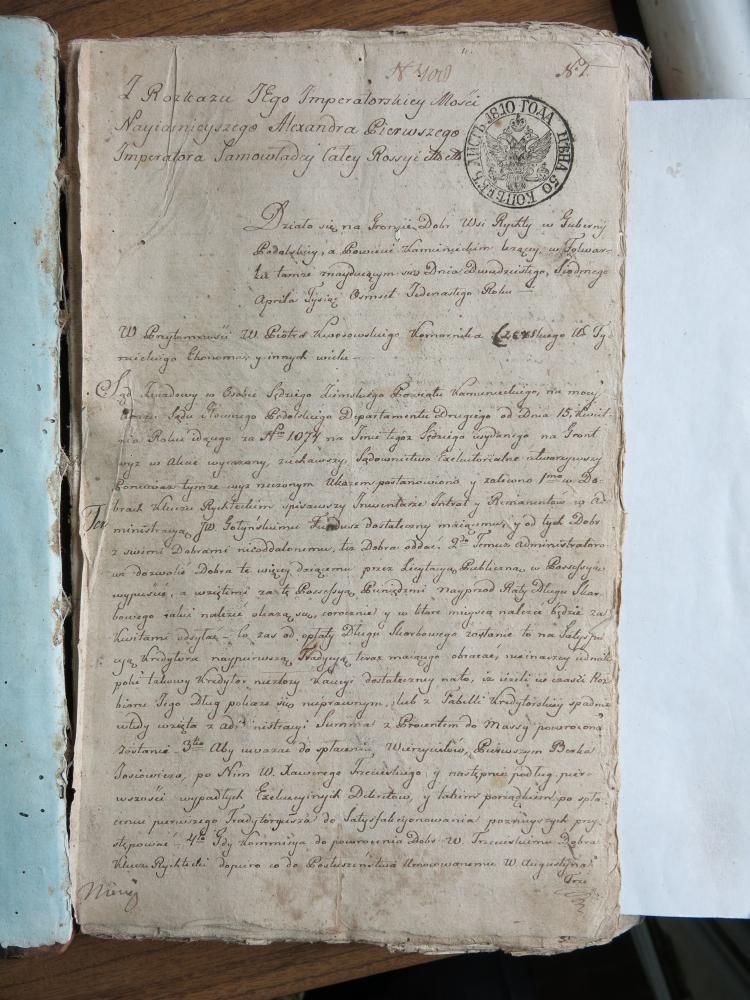 N 4010
N 1.
Z Rozkazu JEgo Imperatorskiey Mości
Nayiaśnieyszego Alexandra Pierwszego
Imperatora Samowładcy Całey Rossyi
ЛИСТЪ 1810 ГОДА ЦѢНА 50 КОПѢЕКЪ
Działo się na Gruncie Dobr Wsi Rychty w Guberny
Podolskiey, a Powiecie Kamienieckim leżącey, w Folwar-
ku tamże znayduiącym się Dnia Dwudziestego Siodmego
Aprila Tysiąc Osmset Jedenastego Roku —
W Przytomności W Piotra Kwosowskiego Komornika
Ekonoma y innych wielu —
Sąd Zjazdowy w Osobie Sędziego Ziemskiego Powiatu Kamienieckiego, na mocy
Ukazu Sądu Głownego Podolskiego Departamentu Drugiego od Dnia 15, Kwiet-
nia Roku idącego za Nrem 1074 na Imie tegoż Sędziego wydanego na Grunt
wyż w Akcie wyrażony, ziechawszy, Sądownictwo Exekutorialne otworzywszy
Ponieważ tymże wyż rzeczonym Ukazem postanowiono y zalecono 1mo w Do-
brach Klucza Rychteckim spisawszy Inwentarze Intrat y Remanentow w ad-
ministracyą JW. Gotyńskiemu Fundusz dostateczny maiącemu, y od tych Dobr
z swemi Dobrami nieoddalonemu, też Dobra oddać. 2do Temuż administratoro-
wi dozwolić Dobra te więcey daiącemu przez Licytacyą Publiczną w Possessyą
wypuścić, a wziętemi za tę Possessyą Pieniędzmi nayprzod Raty Długu Skar-
bowego iakie należeć okażą się, corocznie y w które mieysca należeć będzie za
Kwitami odsyłać — Co zaś od opłaty Długu Skarbowego zostanie to na Satysfak-
cyą Kredytora naypierwszą Tradycyą teraz maiącego obracać, nieinaczey iednak
póki takowy Kredytor niezłoży Kaucyi dostateczney na to, iż ieżeli w czasie Roz-
bioru Jego Dług pokaże się nieprawnym, lub z Tabelli Kredytorskiey spadnie
wtedy wzięta z administracyi Summa z Procentem do Massy powrocona
zostanie — 3tio Aby uważać do spłacenia Wierzycielow, Pierwszym Berka
Josiowicza, po Nim W. Xawerego Trzecieskiego y następnie podług pier-
wszości wypadłych Exekucyinych Dekretow, y takim porządkiem po spła-
ceniu pierwszego Tradytoryusza do Satysfakcyonowania pozniyszych przy-
stępować — 4to Gdy Kommissya do powrocenia Dobr W. Trzecieskiemu Dobra
Klucz Rychtecki dopiero co do Posłuszeństwa Umocowanemu W. Augustyna
Trze